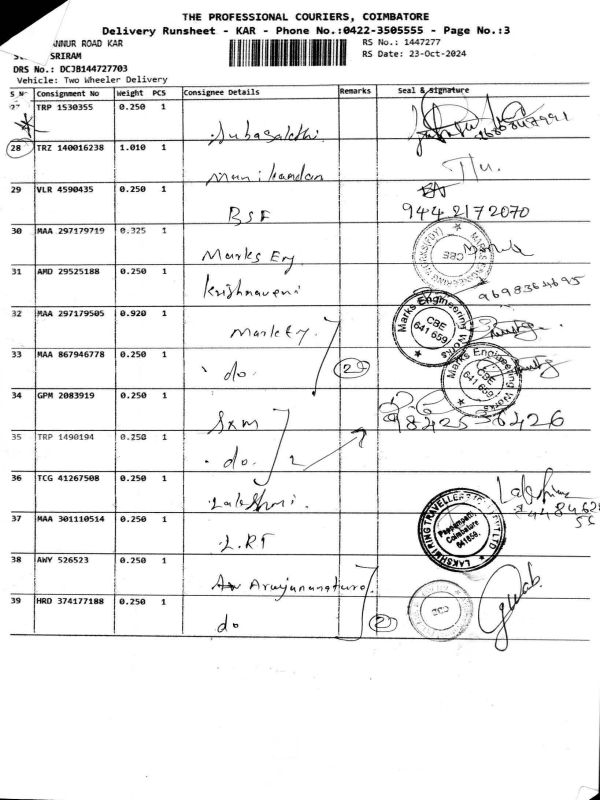 THE PROFESSIONAL COURIERS, COIMBATORE
Delivery Runsheet - KAR - Phone No.:0422-3505555 - Page No.:3
ANNUR ROAD KAR
RS No.: 1447277
SRIRAM
RS Date: 23-Oct-2024
DRS No.: DCJB144727703
Vehicle: Two Wheeler Delivery
S No Consignment No Weight PCS Consignee Details Remarks Seal & signature
27 TRP 1530355 0.250 1
28 TRZ 140016238 1.010 1 Manikandan
29 VLR 4590435 0.250 1 BSF 9442172070
30 MAA 297179719 0.325 1 Marks Eng
31 AMD 29525188 0.250 1 Krishnaveni 9698364695
32 MAA 297179505 0.920 1
33 MAA 867946778 0.250 1 do. 2
34 GPM 2083919 0.250 1 SXM
35 TRP 1490194 0.250 1 do. 2
36 TCG 41267508 0.250 1 Lakshmi. Lakshmi
37 MAA 301110514 0.250 1 L.RT
38 AWY 526523 0.250 1
39 HRD 374177188 0.250 1 do 2
MARKS ENGINEERING WORKS(PDY) CBE
Marks Engineering Works CBE 641 659
Marks Engineering Works CBE 641 659
LAKSHMI RING TRAVELLERS PVT LTD Pappampatti, Coimbatore 641659.